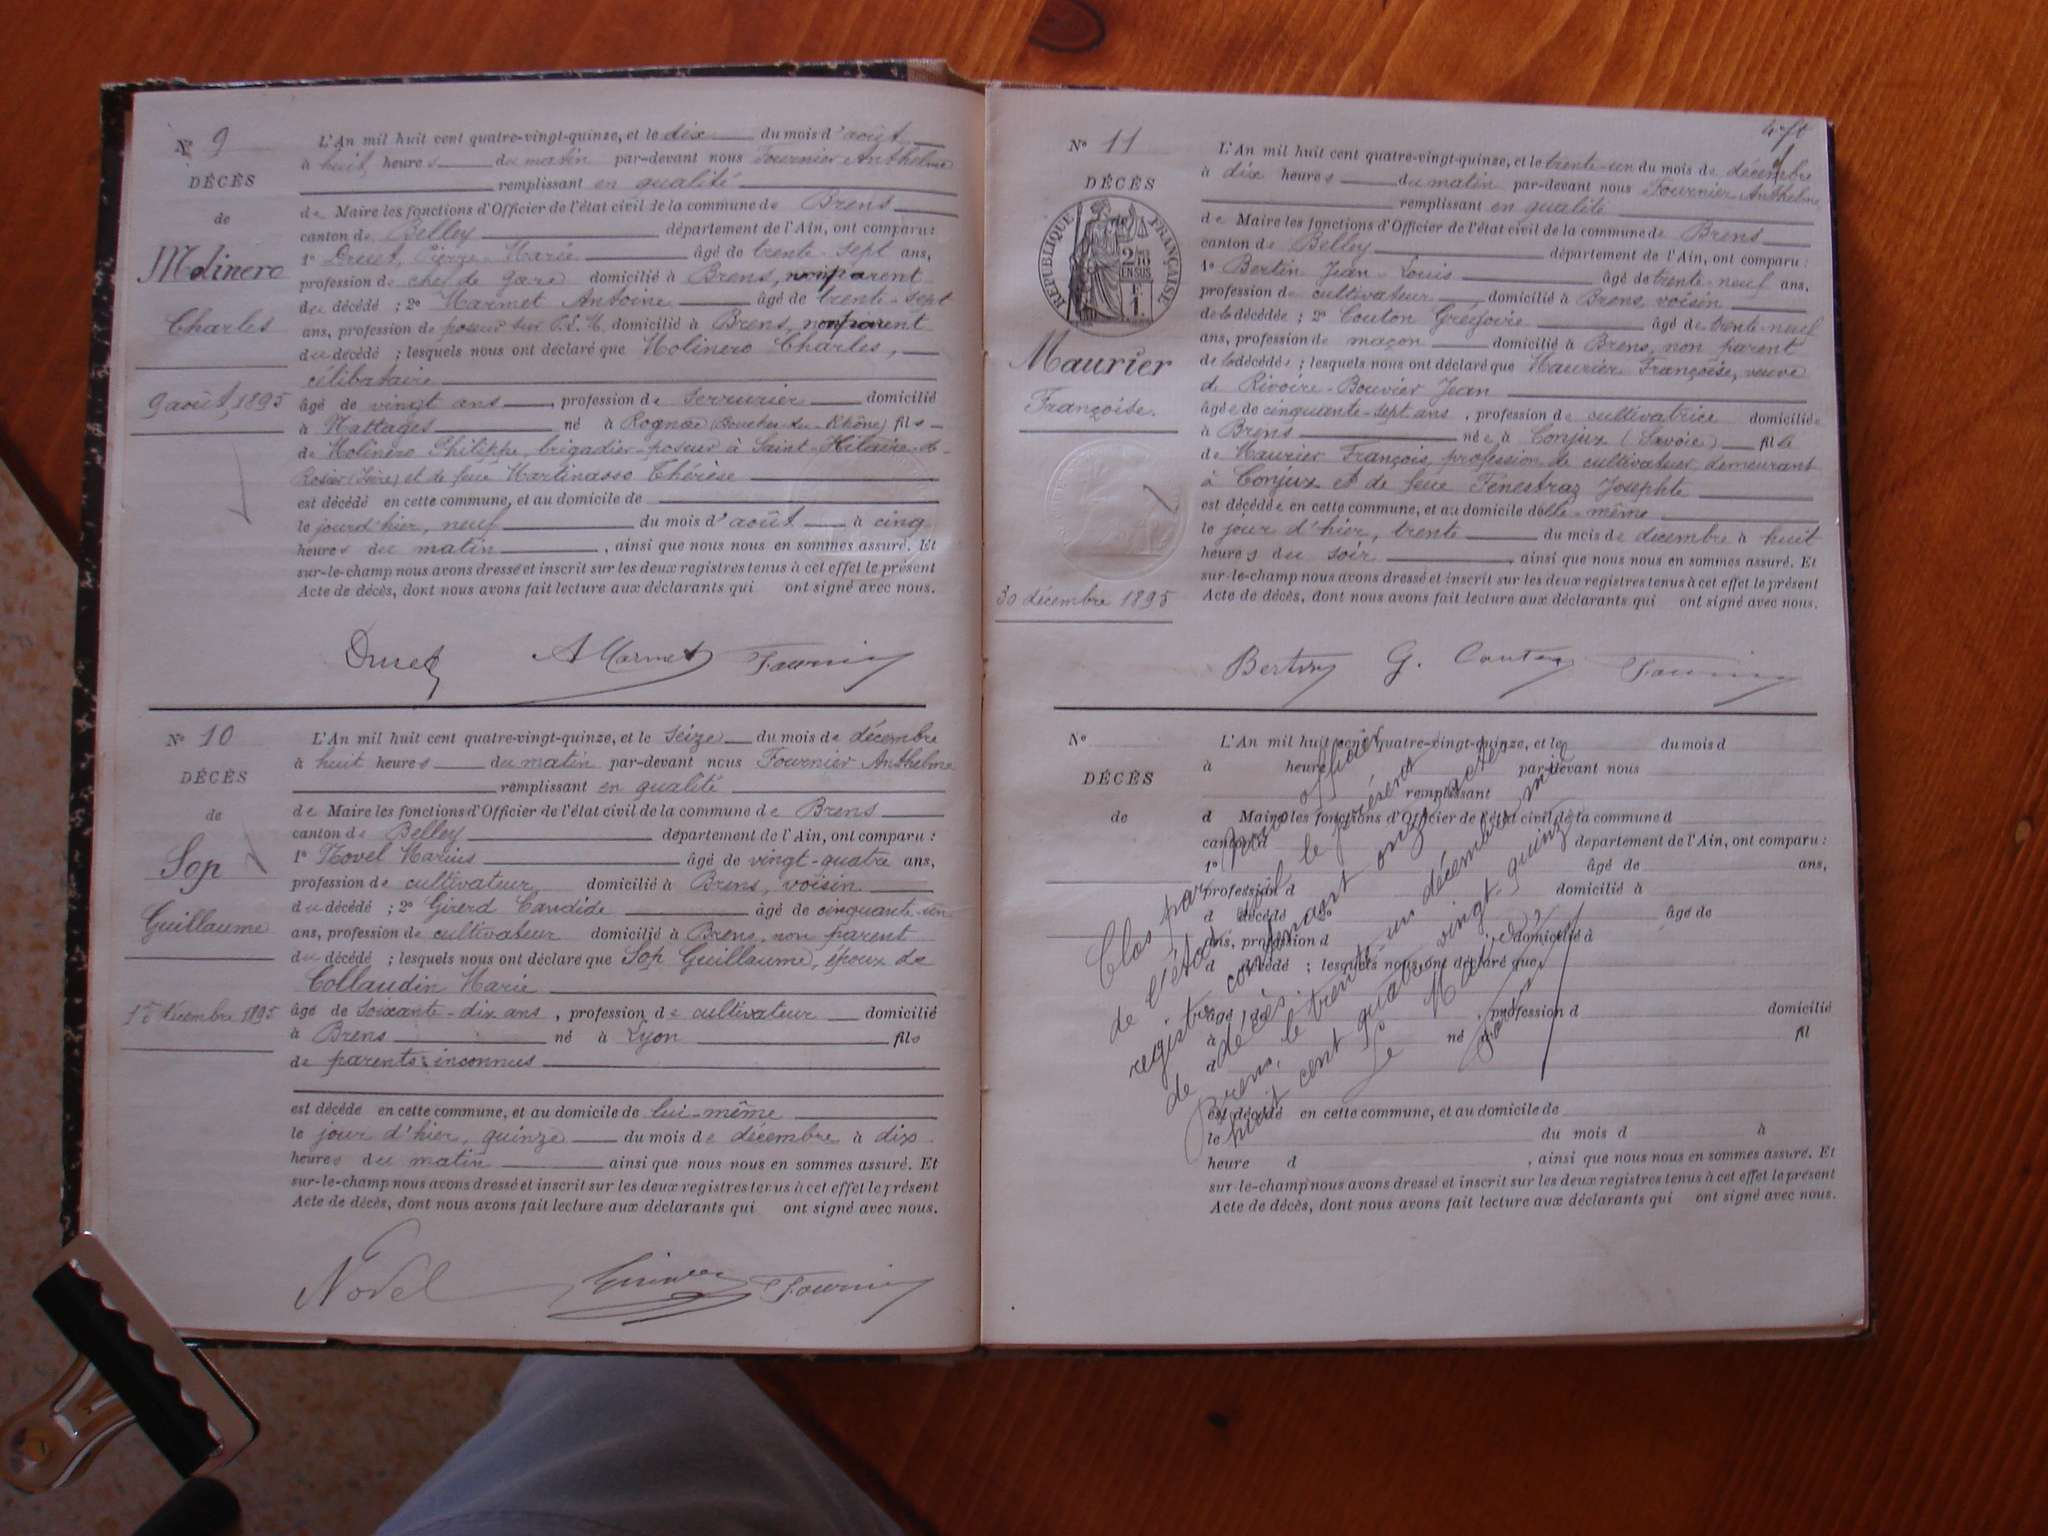 Nº 9
DÉCÈS
de
Molinero
Charles
9 août 1895
L'An mil huit cent quatre-vingt-quinze, et le dix du mois d'août
à huit heures du matin par-devant nous Fournier Anthelme
remplissant en qualité
de Maire les fonctions d'Officier de l'état civil de la commune de Brens
canton de Belley département de l'Ain, ont comparu :
1º Druet, Pierre-Marie âgé de trente-sept ans,
profession de chef de gare domicilié à Brens, non parent
du décédé ; 2º Marmet Antoine âgé de trente-sept
ans, profession de poseur sur P.L.M. domicilié à Brens, non parent
du décédé ; lesquels nous ont déclaré que Molinero Charles,
célibataire
âgé de vingt ans, profession de serrurier domicilié
à Nattages né à Rognac (Bouches-du-Rhône) fils
de Molinero Philippe, brigadier-poseur à Saint-Hilaire-d-
Rosier (Isère) et de feue Martinasso Thérèse
est décédé en cette commune, et au domicile de
le jourd'hier, neuf du mois d'août à cinq
heures du matin, ainsi que nous nous en sommes assuré. Et
sur-le-champ nous avons dressé et inscrit sur les deux registres tenus à cet effet le présent
Acte de décès, dont nous avons fait lecture aux déclarants qui ont signé avec nous.
Druet A Marmet Fournier
Nº 10
DÉCÈS
de
Sop
Guillaume
15 décembre 1895
L'An mil huit cent quatre-vingt-quinze, et le seize du mois de décembre
à huit heures du matin par-devant nous Fournier Anthelme
remplissant en qualité
de Maire les fonctions d'Officier de l'état civil de la commune de Brens
canton de Belley département de l'Ain, ont comparu :
1º Novel Marius âgé de vingt-quatre ans,
profession de cultivateur domicilié à Brens, voisin
du décédé ; 2º Girerd Candide âgé de cinquante-un
ans, profession de cultivateur domicilié à Brens, non parent
du décédé ; lesquels nous ont déclaré que Sop Guillaume, époux de
Collaudin Marie
âgé de soixante-dix ans, profession de cultivateur domicilié
à Brens né à Lyon fils
de parents inconnus
est décédé en cette commune, et au domicile de lui-même
le jour d'hier, quinze du mois de décembre à dix
heures du matin ainsi que nous nous en sommes assuré. Et
sur-le-champ nous avons dressé et inscrit sur les deux registres tenus à cet effet le présent
Acte de décès, dont nous avons fait lecture aux déclarants qui ont signé avec nous.
Novel Fournier
Nº 11
DÉCÈS
de
RÉPUBLIQUE FRANÇAISE
2/10
EN SUS
Maurier
Françoise.
30 décembre 1895
L'An mil huit cent quatre-vingt-quinze, et le trente-un du mois de décembre
à dix heures du matin par-devant nous Fournier Anthelme
remplissant en qualité
de Maire les fonctions d'Officier de l'état civil de la commune de Brens
canton de Belley département de l'Ain, ont comparu :
1º Bertin Jean-Louis âgé de trente-neuf ans,
profession de cultivateur domicilié à Brens, voisin
de la décédée ; 2º Couton Grégoire âgé de trente-neuf
ans, profession de maçon domicilié à Brens, non parent
de la décédée ; lesquels nous ont déclaré que Maurier Françoise, veuve
de Rivoire-Bouvier Jean
âgée de cinquante-sept ans, profession de cultivatrice domiciliée
à Brens née à Conjux (Savoie) fille
de Maurier François, profession de cultivateur demeurant
à Conjux et de feue Fenestraz Josephte
est décédée en cette commune, et au domicile d'elle-même
le jour d'hier, trente du mois de décembre à huit
heures du soir, ainsi que nous nous en sommes assuré. Et
sur-le-champ nous avons dressé et inscrit sur les deux registres tenus à cet effet le présent
Acte de décès, dont nous avons fait lecture aux déclarants qui ont signé avec nous.
Bertin G. Couton Fournier
Nº
DÉCÈS
de
L'An mil huit cent quatre-vingt-quinze, et le du mois d
à heure par-devant nous
remplissant
d Maire les fonctions d'Officier de l'état civil de la commune d
canton d département de l'Ain, ont comparu :
1º âgé de ans,
profession d domicilié à
d décédé 2º âgé de
ans, profession d domicilié à
d décédé ; lesquels nous ont déclaré que
âgé de, profession d domicilié
à né à fil
d
est décédé en cette commune, et au domicile de
le du mois d à
heure d, ainsi que nous nous en sommes assuré. Et
sur-le-champ nous avons dressé et inscrit sur les deux registres tenus à cet effet le présent
Acte de décès, dont nous avons fait lecture aux déclarants qui ont signé avec nous.
Clos par nous officier
de l'état civil le présent
registre contenant onze actes
de décès.
Brens, le trente un décembre mil
huit cent quatre vingt quinze
Le Maire